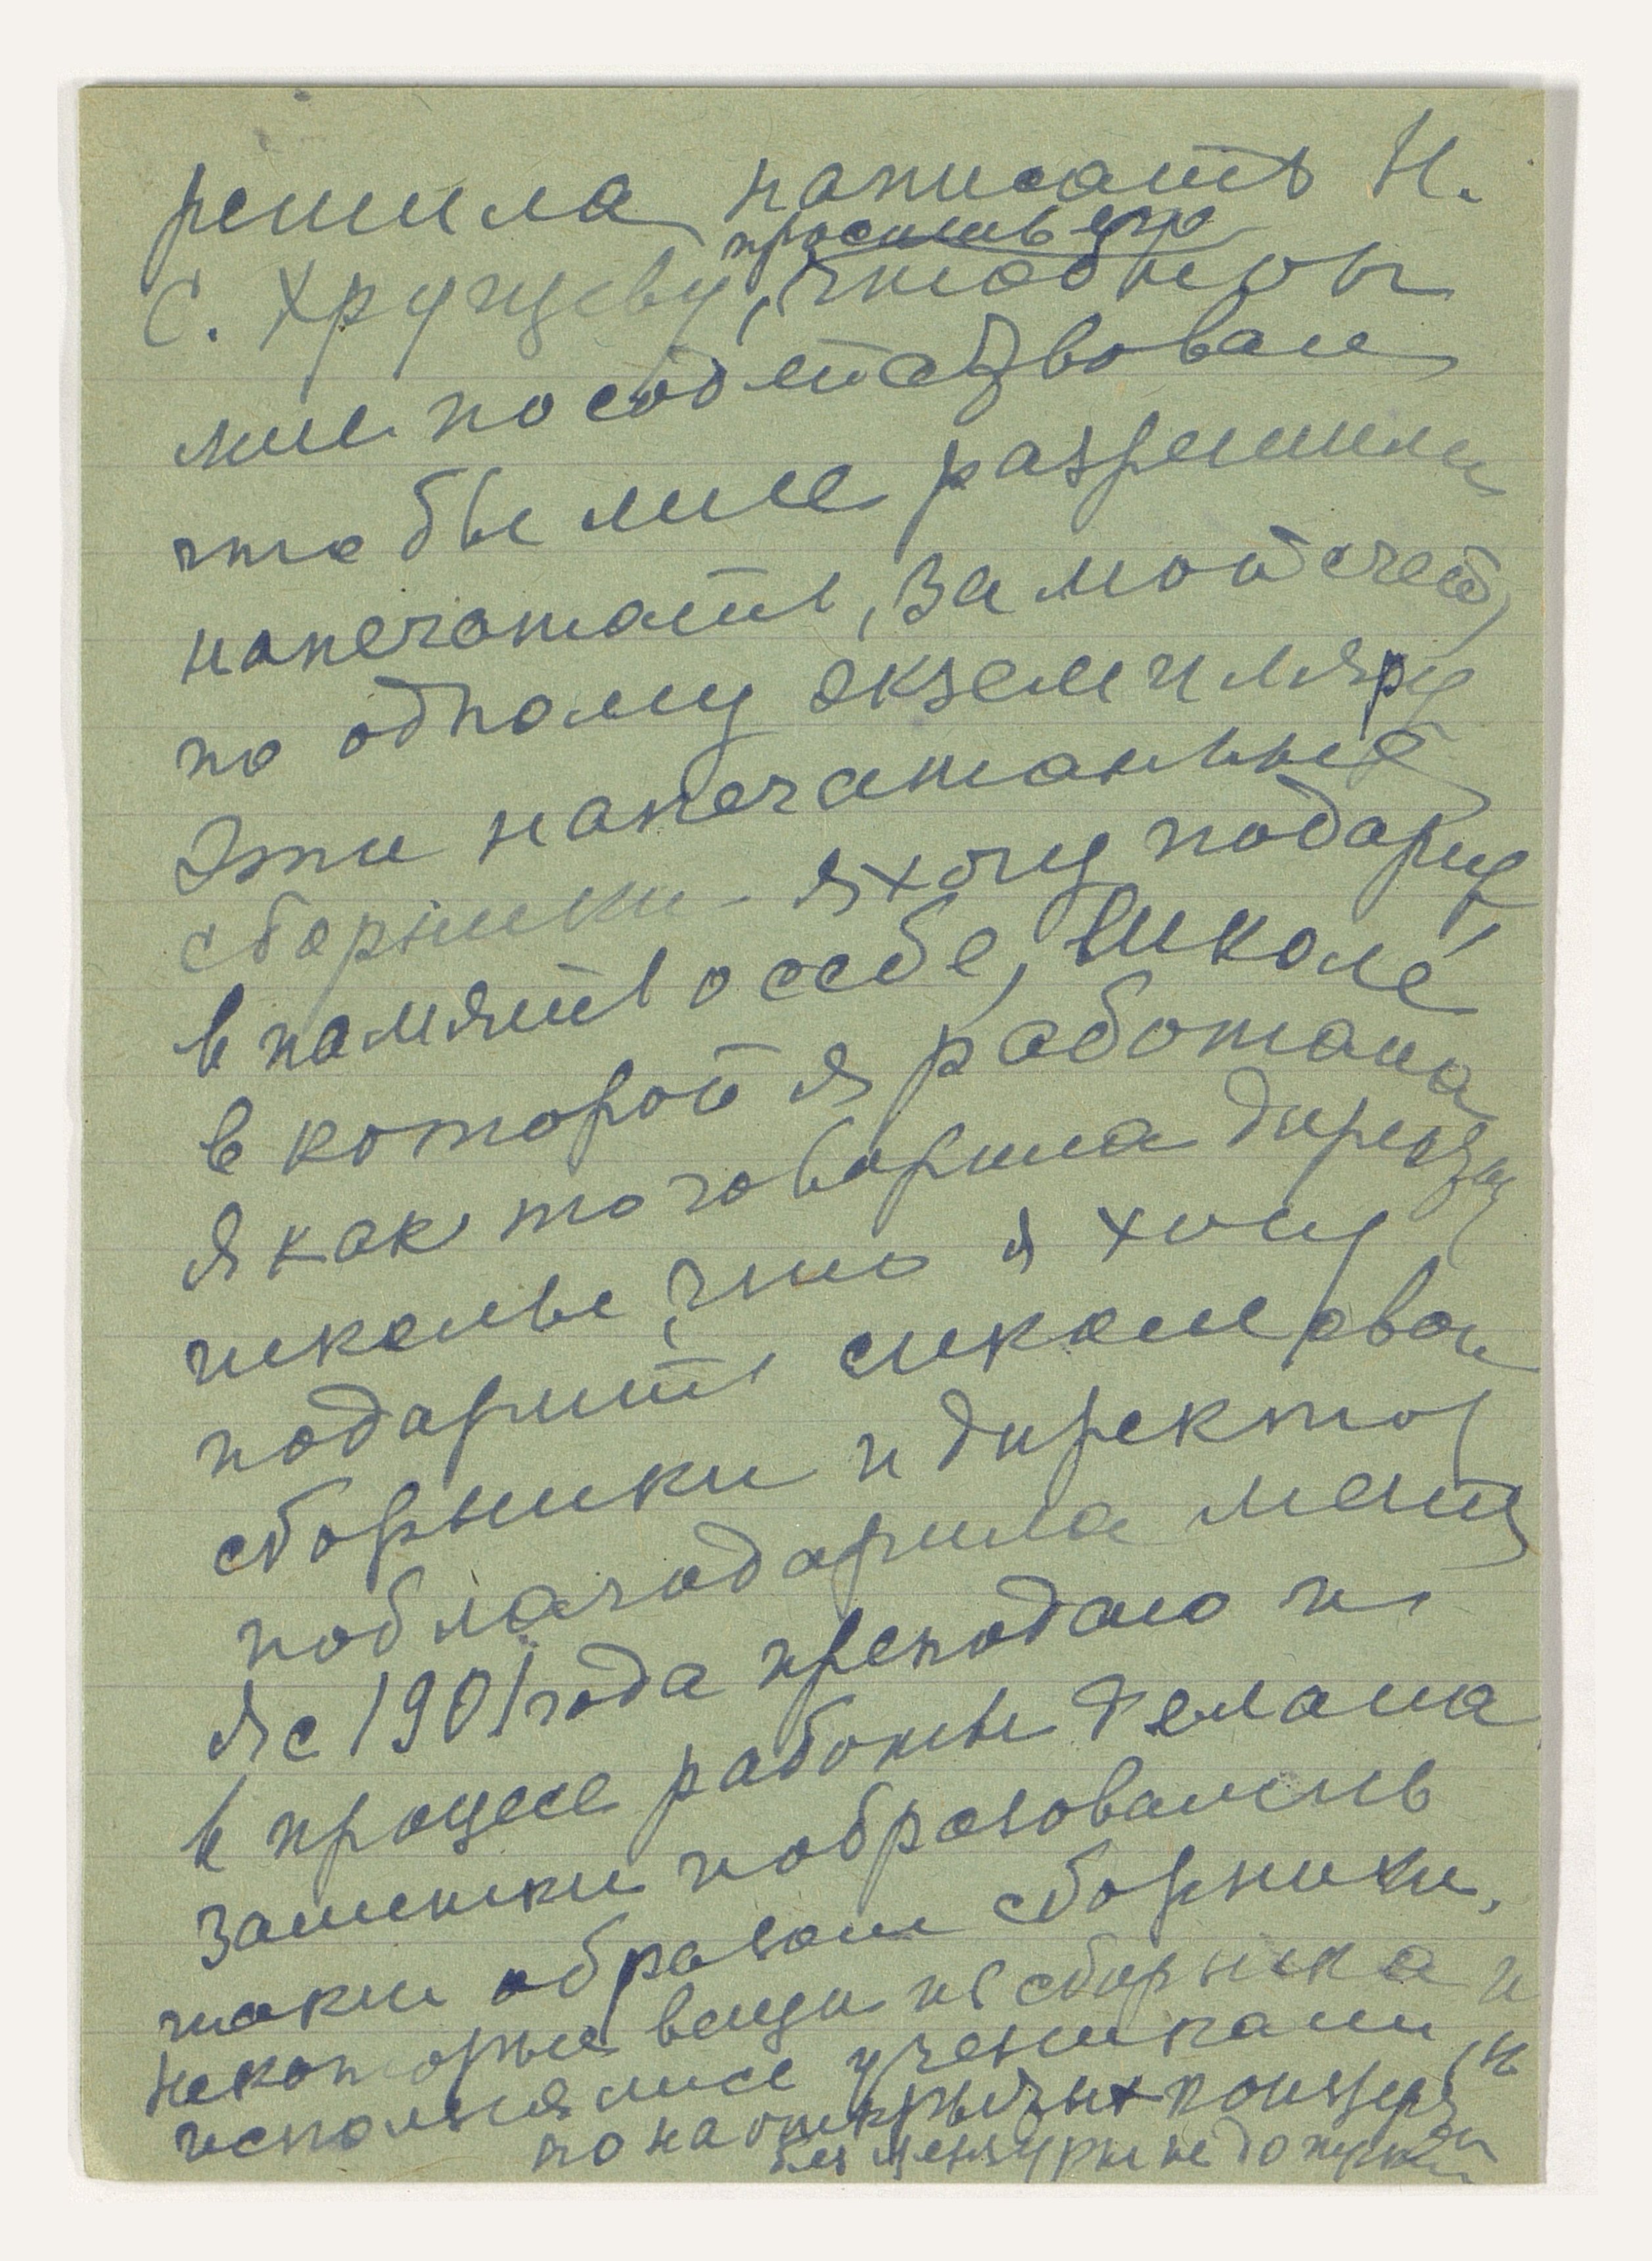 решила написать Н.
просить его
С. Хрущеву, чтобы он
мне посодействовал
чтобы мне разрешили
напечатать, за мой счет,
по одному экземпляру
Эти напечатанные
сборники - я хочу подарить,
в память о себе, школе,
в которой я работала
Я как то говорила директору
школы, что я хочу
подарить школе свои
сборники и директор
поблагодарила меня
Я с 1901 года преподаю и
в процесе работы делала
заметки и образовались
таким образом сборники.
Некоторые вещи из сборника и
исполнялись учениками, но
но на открытых концертах
без цензуры не допускали